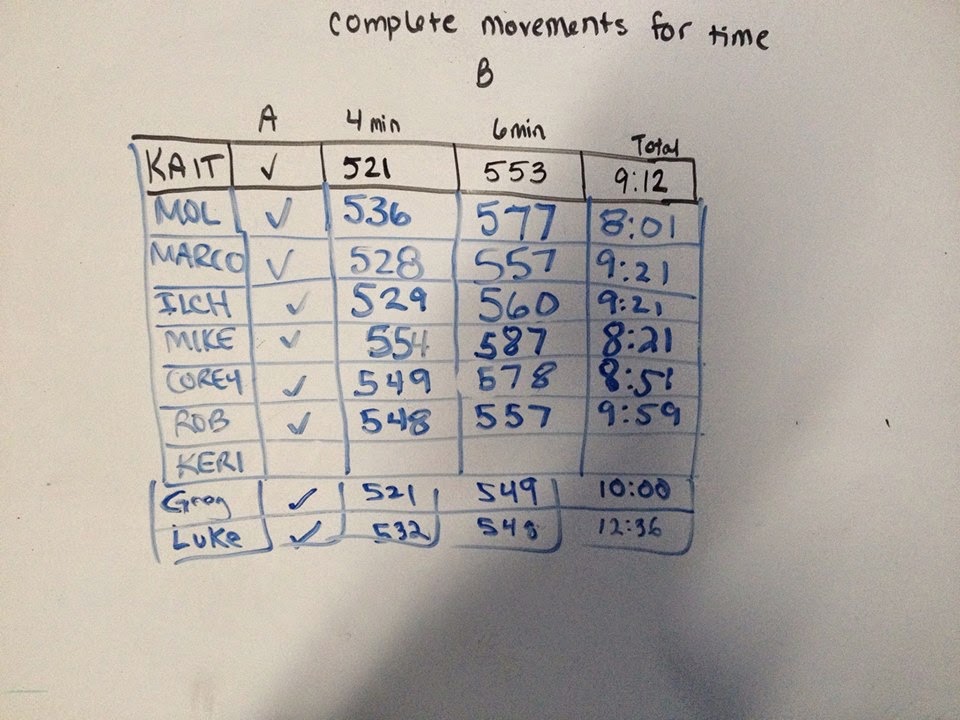 complete movements for time
B
A 4 min 6 min Total
KAIT ✓ 521 553 9:12
MOL ✓ 536 577 8:01
MARCO ✓ 528 557 9:21
ILCH ✓ 529 560 9:21
MIKE ✓ 554 587 8:21
COREY ✓ 549 578 8:51
ROB ✓ 548 557 9:59
KERI
Greg ✓ 521 549 10:00
Luke ✓ 532 548 12:36